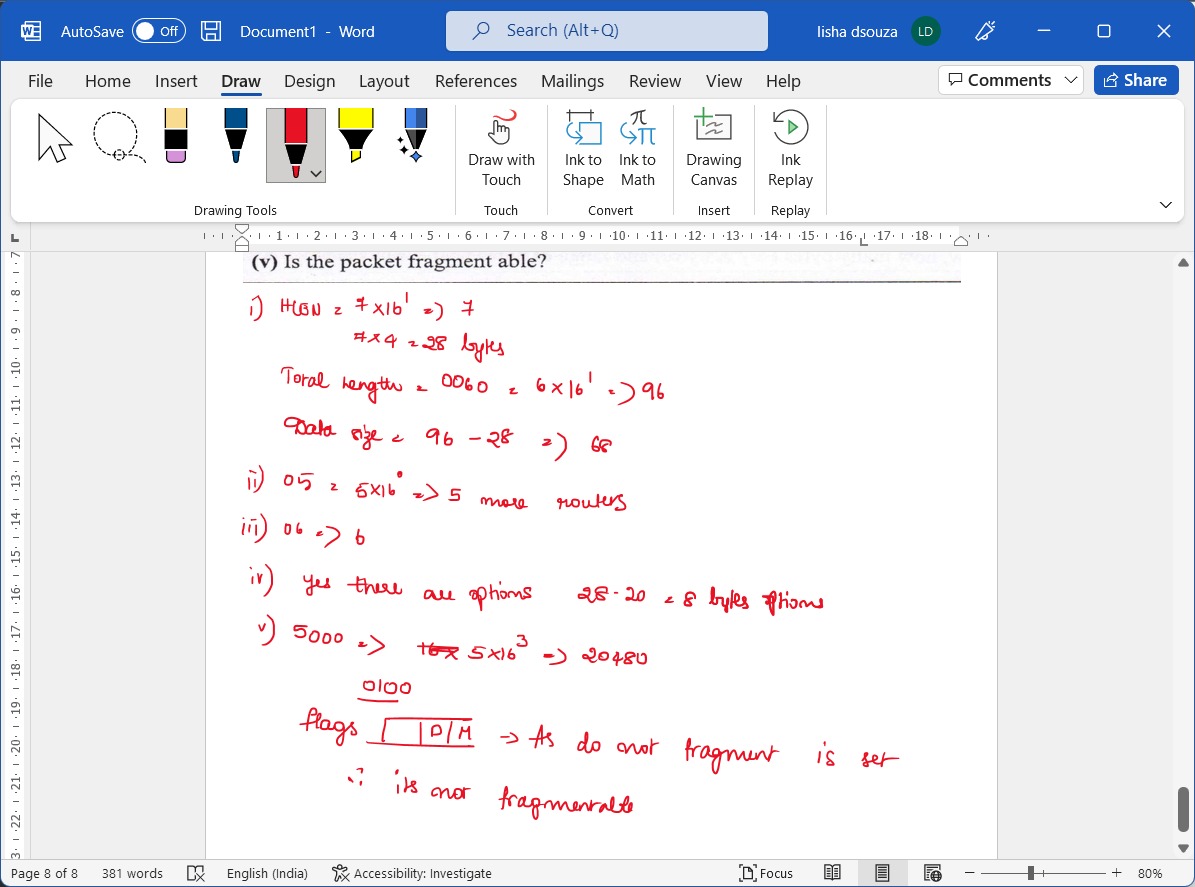 AutoSave Off Document1 - Word Search (Alt+Q) lisha dsouza LD
File Home Insert Draw Design Layout References Mailings Review View Help Comments Share
Draw with Touch Ink to Shape Ink to Math Drawing Canvas Ink Replay
Drawing Tools Touch Convert Insert Replay
1 2 3 4 5 6 7 8 9 10 11 12 13 14 15 16 17 18
(v) Is the packet fragment able?
i) = 7 x 16¹ => 7
7 x 4 = 28 bytes
Total Length = 0060 = 6 x 16¹ => 96
Data size = 96 - 28 => 68
ii) 05 = 5x16⁰ => 5 more routers
iii) 06 => 6
iv) yes there are options 28 - 20 = 8 bytes options
v) 5000 => 5 x 16³ => 20480
0100
flags D M -> As do not fragment is set
∴ its not fragmentable
Page 8 of 8 381 words English (India) Accessibility: Investigate Focus 80%